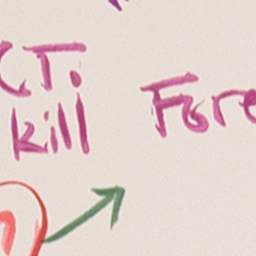 CT.
kill Fore